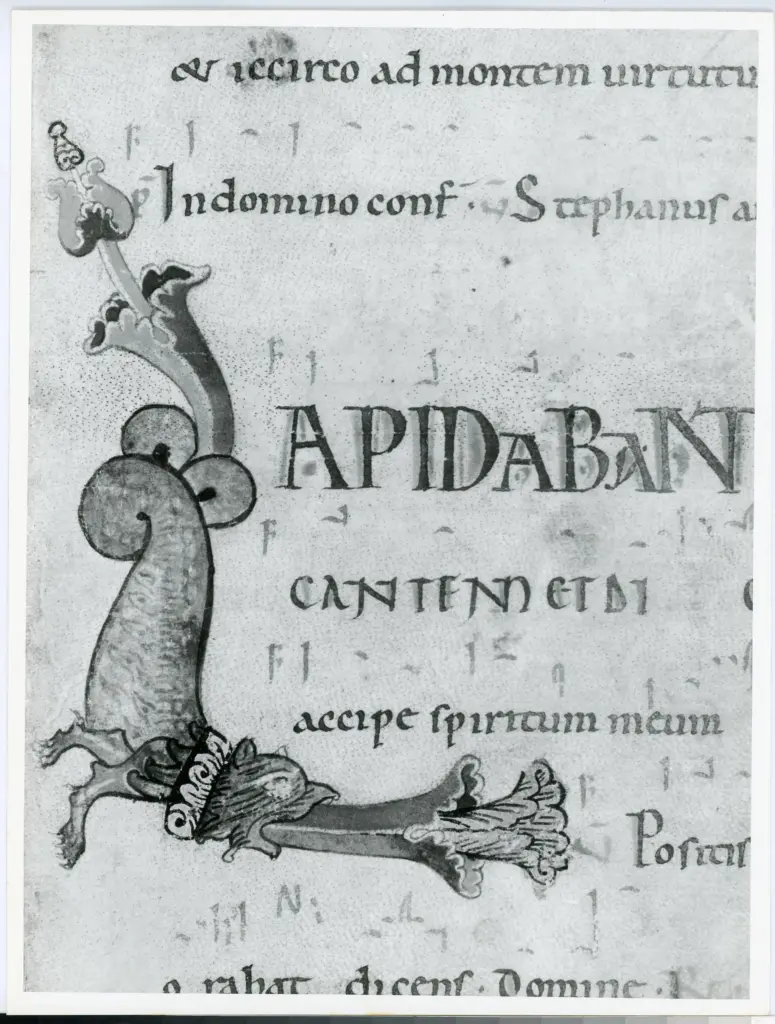 & iccirco ad montem uirtutu
In domino conf· Stephanus a
LAPIDABANT
CANTEM ET DI
accipe spiritum meum
Positis
rabat dicens· Domine·